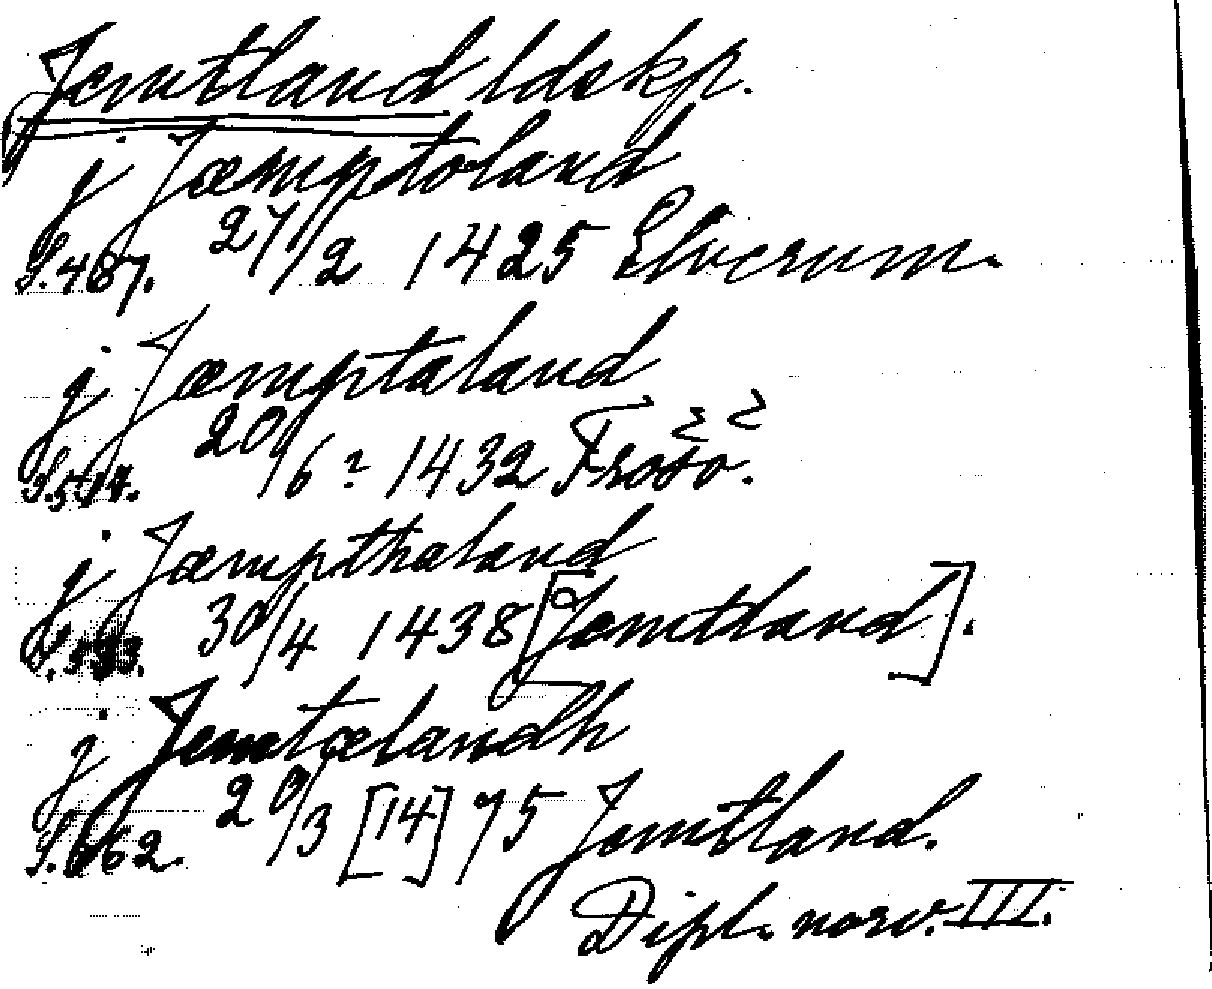 Jemtland ldskp.
j Jæmptoland
S. 487. 27/2 1425 Elverum.
j Jæmptaland
S. 514. 20/6 ? 1432 Frösö.
j Jæmpthaland
S. 533. 30/4 1438 [Jemtland].
j Jemtælandh
S. 662. 20/3 [14]75 Jemtland.
Dipl. norv. III.